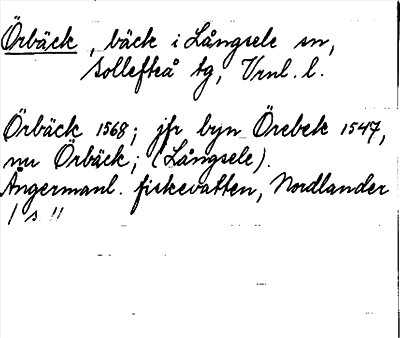 Örbäck, bäck i Långsele sn,
Sollefteå tg, Vrnl. l.
Örbäck 1568; jfr byn Örebek 1547,
nu Örbäck; (Långsele).
Ångermanl. fiskevatten, Nordlander
1 s 11